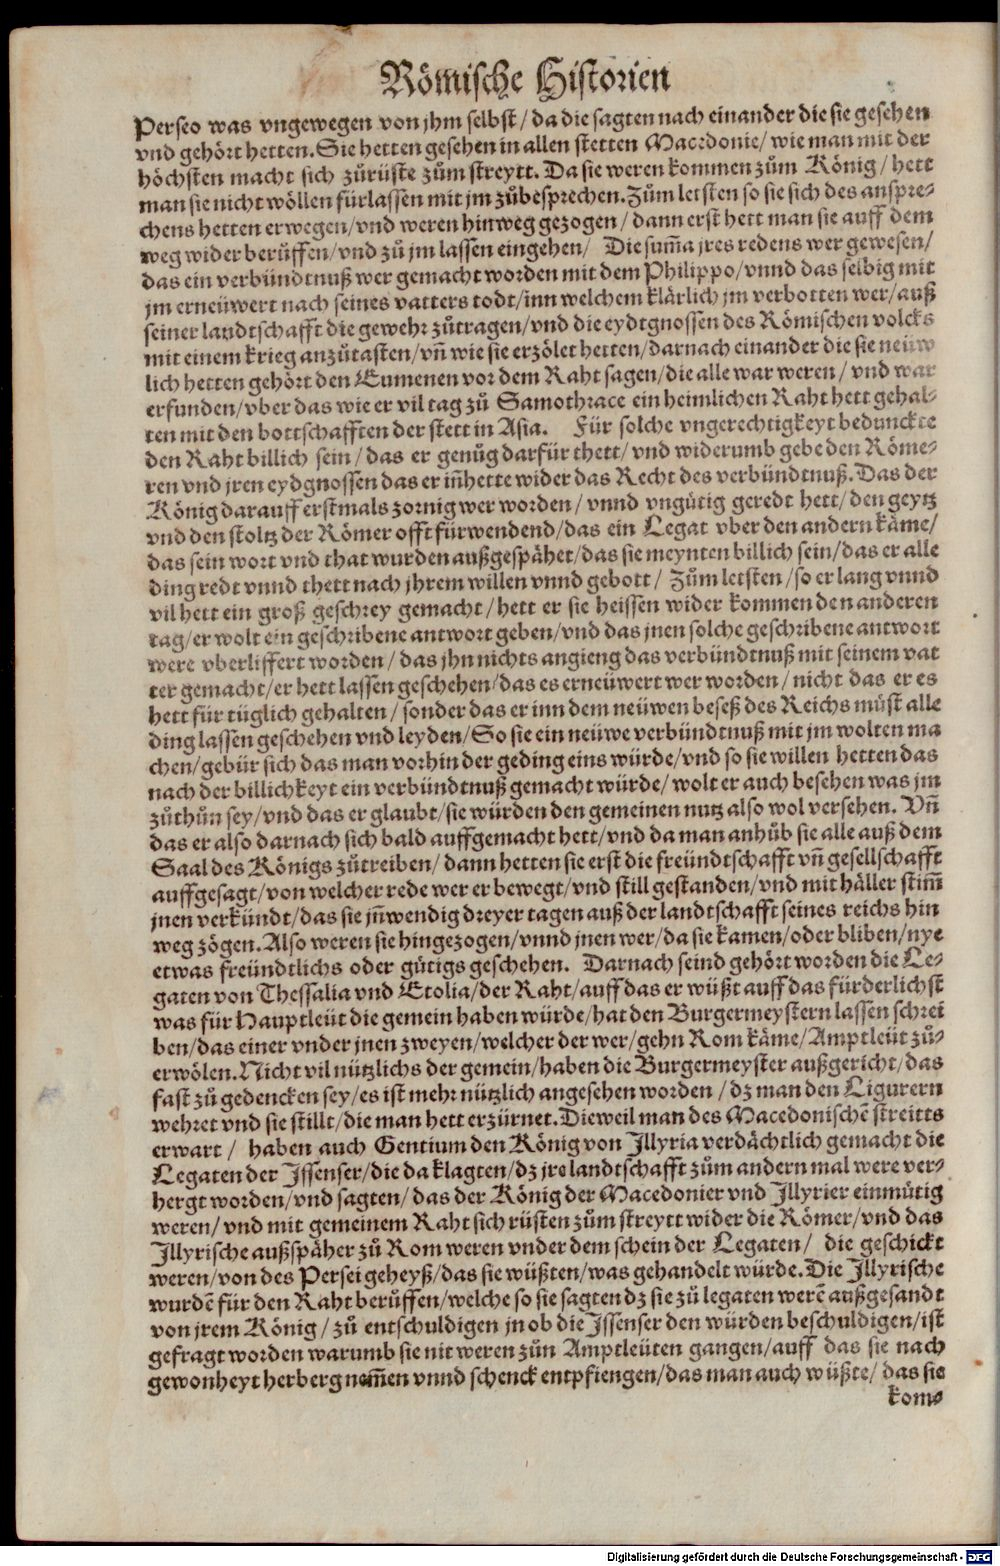 Römische Historien
Perseo was vngewegen von jhm selbst / da die sagten nach einander die sie gesehen
vnd gehört hetten. Sie hetten gesehen in allen stetten Macedonie / wie man mit der
höchsten macht sich zůrüste zům streytt. Da sie weren kommen zům König / hett
man sie nicht wöllen fürlassen mit jm zůbesprechen. Zům letsten so sie sich des anspre⸗
chens hetten erwegen / vnd weren hinweg gezogen / dann erst hett man sie auff dem
weg wider berůffen / vnd zů jm lassen eingehen / Die sum̃a jres redens wer gewesen /
das ein verbündtnuß wer gemacht worden mit dem Philippo / vnnd das selbig mit
jm erneüwert nach seines vatters todt / inn welchem klärlich jm verbotten wer / auß
seiner landtschafft die gewehr zůtragen / vnd die eydtgnossen des Römischen volcks
mit einem krieg anzůtasten / vñ wie sie erzölet hetten / darnach einander die sie neüw
lich hetten gehört den Eumenen vor dem Raht sagen / die alle war weren / vnd war
erfunden / vber das wie er vil tag zů Samothrace ein heimlichen Raht hett gehal⸗
ten mit den bottschafften der stett in Asia. Für solche vngerechtigkeyt bedunckte
den Raht billich sein / das er genůg darfür thett / vnd widerumb gebe den Röme⸗
ren vnd jren eydgnossen das er iñhette wider das Recht des verbündtnuß. Das der
König darauff erstmals zornig wer worden / vnnd vngütig geredt hett / den geytz
vnd den stoltz der Römer offt fürwendend / das ein Legat vber den andern käme /
das sein wort vnd that wurden außgespähet / das sie meynten billich sein / das er alle
ding redt vnnd thett nach jhrem willen vnnd gebott / Zům letsten / so er lang vnnd
vil hett ein groß geschrey gemacht / hett er sie heissen wider kommen den anderen
tag / er wolt ein geschribene antwort geben / vnd das jnen solche geschribene antwort
were vberliffert worden / das jhn nichts angieng das verbündtnuß mit seinem vat
ter gemacht / er hett lassen geschehen / das es erneüwert wer worden / nicht das er es
hett für tüglich gehalten / sonder das er inn dem neüwen beseß des Reichs müst alle
ding lassen geschehen vnd leyden / So sie ein neüwe verbündtnuß mit jm wolten ma
chen / gebür sich das man vorhin der geding eins würde / vnd so sie willen hetten das
nach der billichkeyt ein verbündtnuß gemacht würde / wolt er auch besehen was jm
zůthůn sey / vnd das er glaubt / sie würden den gemeinen nutz also wol versehen. Vñ
das er also darnach sich bald auffgemacht hett / vnd da man anhůb sie alle auß dem
Saal des Königs zůtreiben / dann hetten sie erst die freündtschafft vñ gesellschafft
auffgesagt / von welcher rede wer er bewegt / vnd still gestanden / vnd mit häller stim̃
jnen verkündt / das sie jñwendig dreyer tagen auß der landtschafft seines reichs hin
weg zögen. Also weren sie hingezogen / vnnd jnen wer / da sie kamen / oder bliben / nye
etwas freündtlichs oder gütigs geschehen. Darnach seind gehört worden die Le⸗
gaten von Thessalia vnd Etolia / der Raht / auff das er wüßt auff das fürderlichst
was für Hauptleüt die gemein haben würde / hat den Burgermeystern lassen schrei
ben / das einer vnder jnen zweyen / welcher der wer / gehn Rom käme / Amptleüt zů⸗
erwölen. Nicht vil nützlichs der gemein / haben die Burgermeyster außgericht / das
fast zů gedencken sey / es ist mehr nützlich angesehen worden / dz man den Ligurern
wehret vnd sie stillt / die man hett erzürnet. Dieweil man des Macedonischē streitts
erwart / haben auch Gentium den König von Illyria verdächtlich gemacht die
Legaten der Issenser / die da klagten / dz jre landtschafft zům andern mal were ver⸗
hergt worden / vnd sagten / das der König der Macedonier vnd Illyrier einmütig
weren / vnd mit gemeinem Raht sich rüsten zům streytt wider die Römer / vnd das
Illyrische außspäher zů Rom weren vnder dem schein der Legaten / die geschickt
weren / von des Persei geheyß / das sie wüßten / was gehandelt würde. Die Illyrische
wurdē für den Raht berůffen / welche so sie sagten dz sie zů legaten werē außgesandt
von jrem König / zů entschuldigen jn ob die Issenser den würden beschuldigen / ist
gefragt worden warumb sie nit weren zůn Amptleüten gangen / auff das sie nach
gewonheyt herberg nem̃en vnnd schenck entpfiengen / das man auch wüßte / das sie
kom⸗
Digitalisierung gefördert durch die Deutsche Forschungsgemeinschaft - DFG